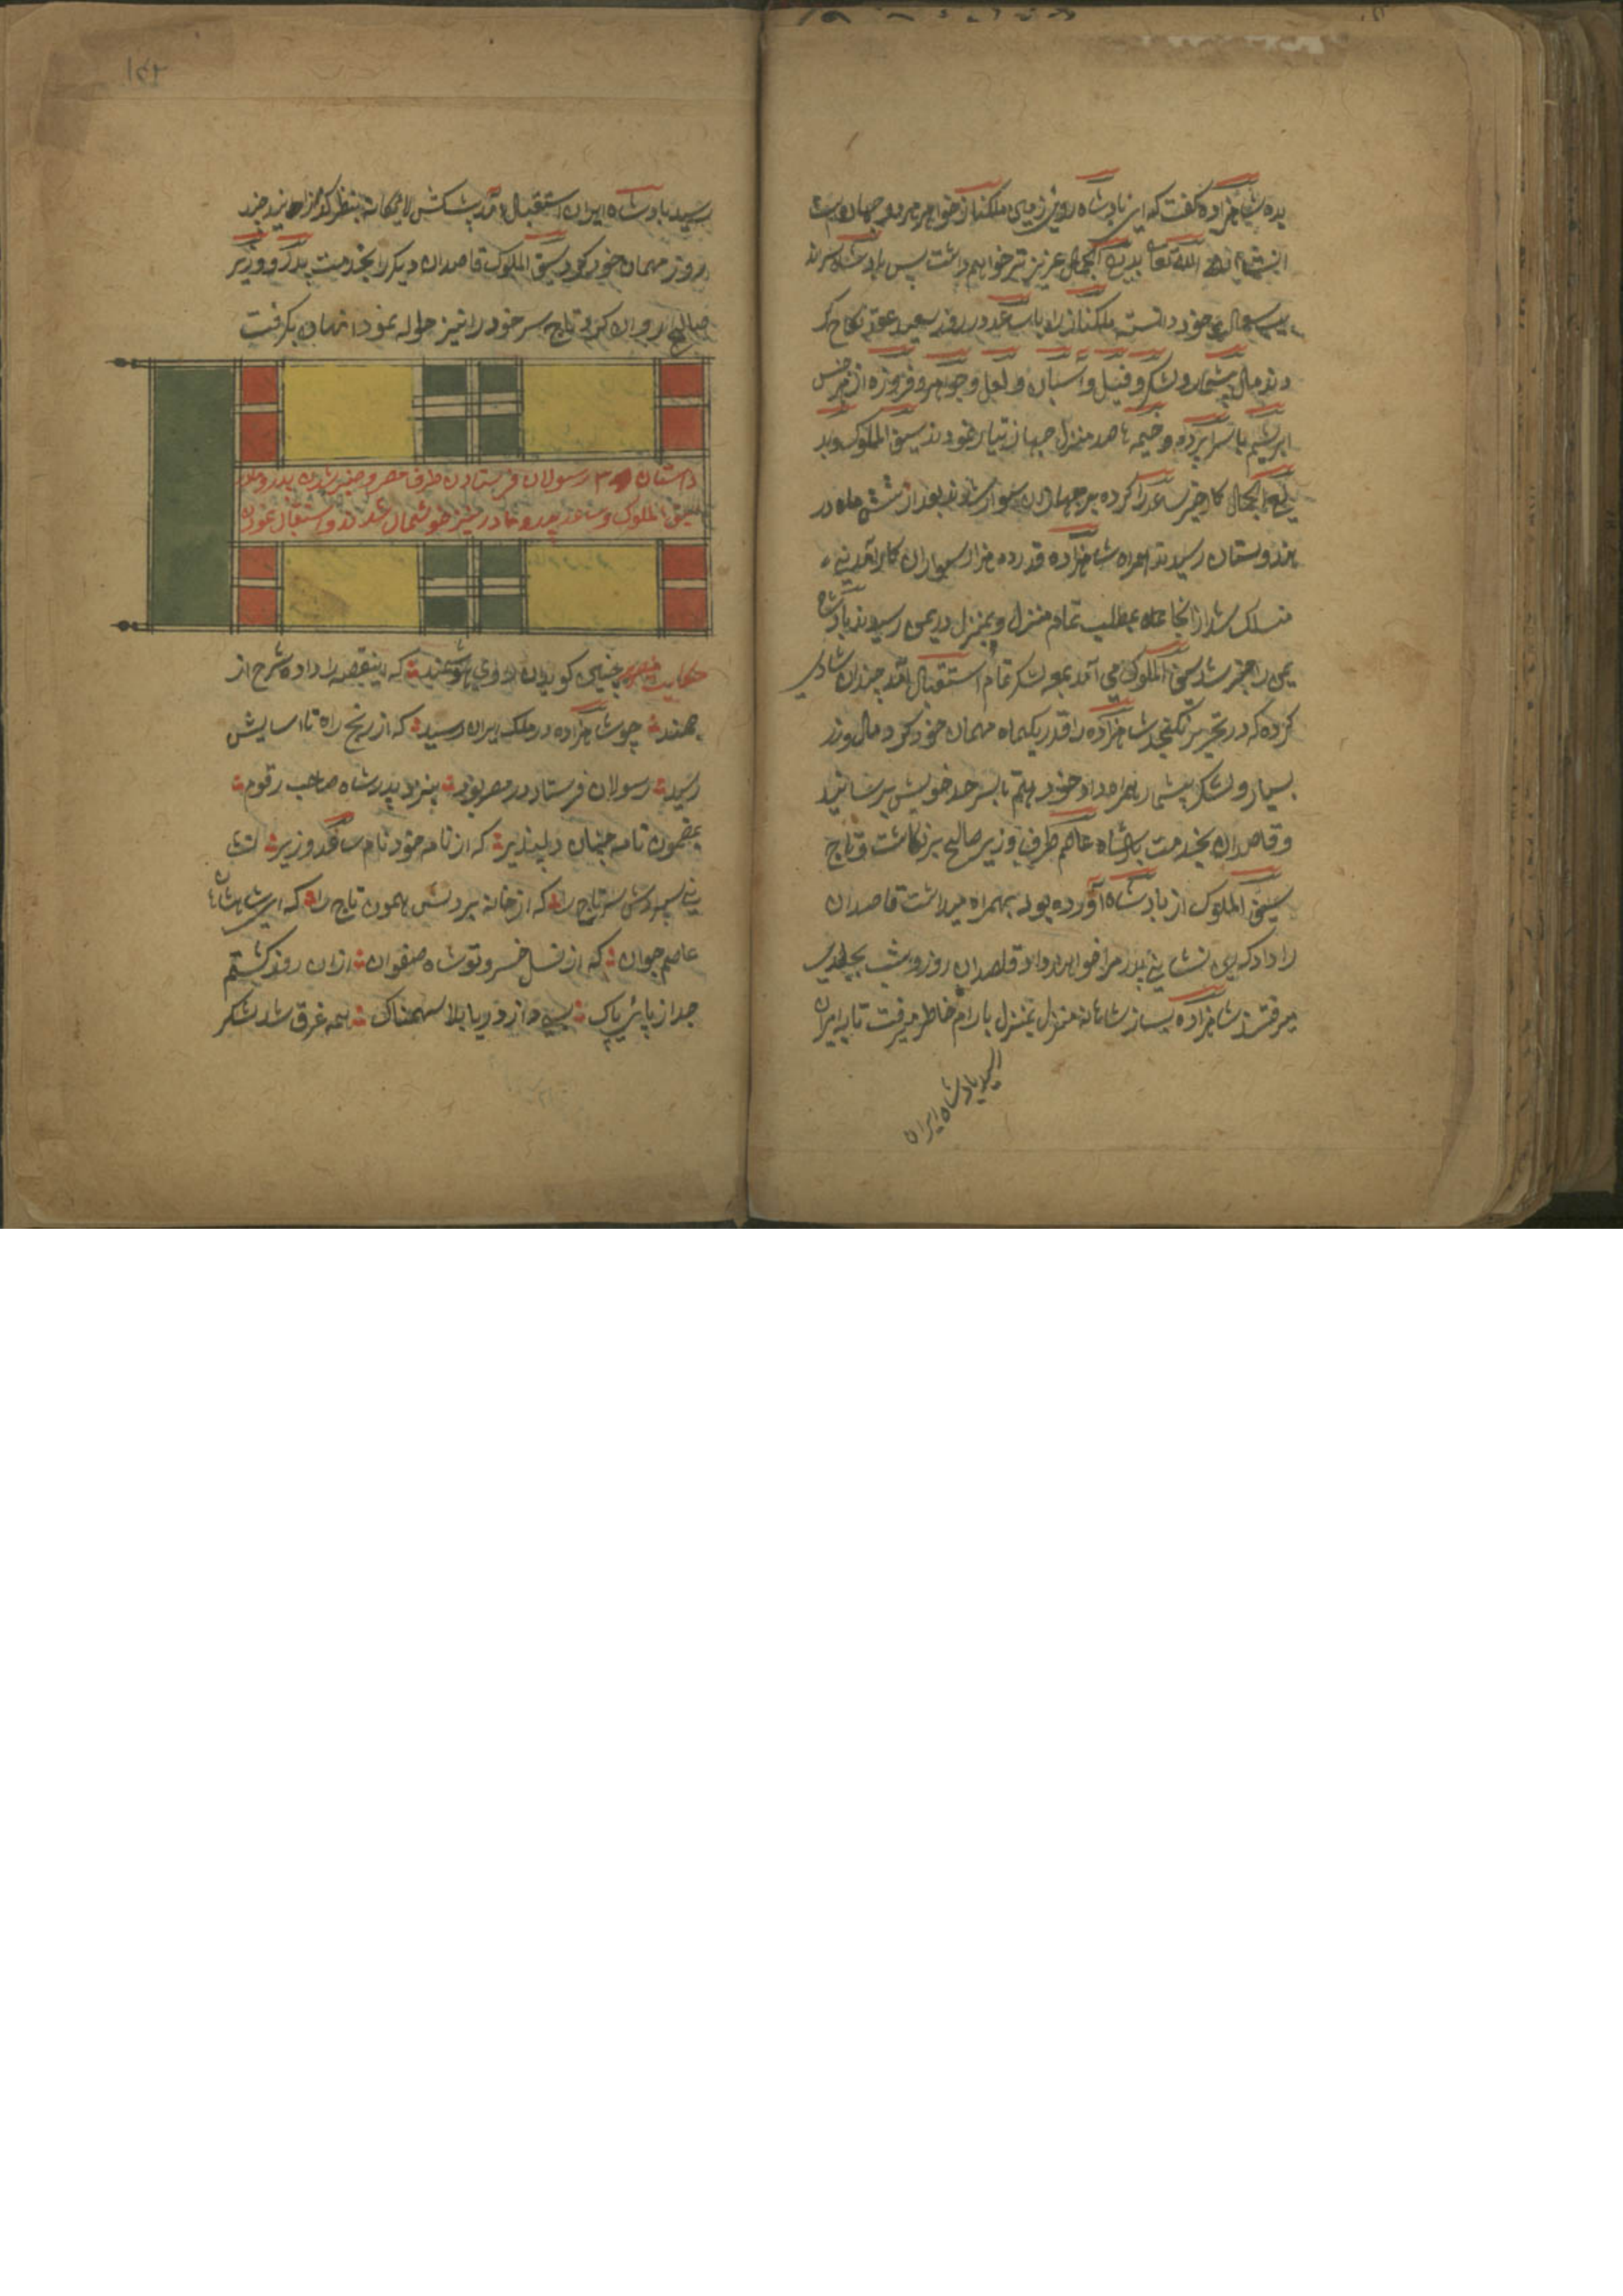 شاهزاده گفت که این بادشاه روی زمین ملکناز خواهر من در جهان است
انشاء الله تعالی بدیع الجمال عزیزتر خواهم داشت پس بادشاه سراند
دانسته ملکناز را با ساعد در روز سعید عقد نکاح کر
دند مال بیشمار و لشکر و فیل و اسپان و لعل و جواهر و فیروزه از هر جنس
ابریشم با سراپرده و خیمه تا صد منزل جهاز تیار نمودند سیف الملوک و بد
یع الجمال کار خیر ساعد را کرده بر جهازان سوار شدند بعد از شش ماه در
هندوستان رسیدند همراه شاهزاده قدر ده هزار سواران
منسلک شد از انجا تمام منزل بمنزل در یمن رسیدند بادشاه
یمن را خبر شد سیف الملوک می آمد بمعه لشکر تمام استقبال آمد چندان شادی
کرده که در تحریر نگنجد شاهزاده را قدر یکماه مهمان خود کرد مال و زر
بسیار و لشکر بیشمار همراه داد خود هم تا بسر حد خویش برسانید
و قاصدان بخدمت بادشاه عاصم طرف وزیر صالح بر نگاشت و تاج
سیف الملوک از بادشاه آورده بود بهمراه میداشت قاصدان
را داد که این نشانی پدر مرا خواهند داد قاصدان روز و شب بجلدی
میرفتند شاهزاده بساز شاهانه منزل بمنزل بارام خاطر میرفت تا به ایران
رسید بادشاه ایران
رسید بادشاه ایران استقبال آمد پیشکش لایق شاهانه بنظر گذرانید چند
روز مهمان خود کرد سیف الملوک قاصدان دیگر را بخدمت پدر و وزیر
صالح روان کرد تاج سر خود را نیز حواله نمود انهان بگرفت
داستان ۳۰ رسولان فرستادن طرف مصر و خبر شدن پدر و مادر
سیف الملوک و ساعد پدر و مادر نیز خوشحال شدند و استقبال نمودن
حکایت چنین گویدان راوی هوشمند که اینقصه را داده شرح از
بهند چو شاهزاده در ملک ایران رسید که از رنج راه تا اسایش
رسید رسولان فرستاد در مصر بود بنزد پدر شاه صاحب رقوم
بمضمون نامه چنان دلپذیر که از نامه خود نام ساعد وزیر نشا
نی سپردش سر تاج را که از خانه بردش همون تاج را که ای شاه شاهان
عاصم جوان که از نسل خسرو تو شاه صفوان ازان روز گشتم
جدا از پای پاک بسی دیدم از دریا بلا سهمناک همه غرق شد لشکر